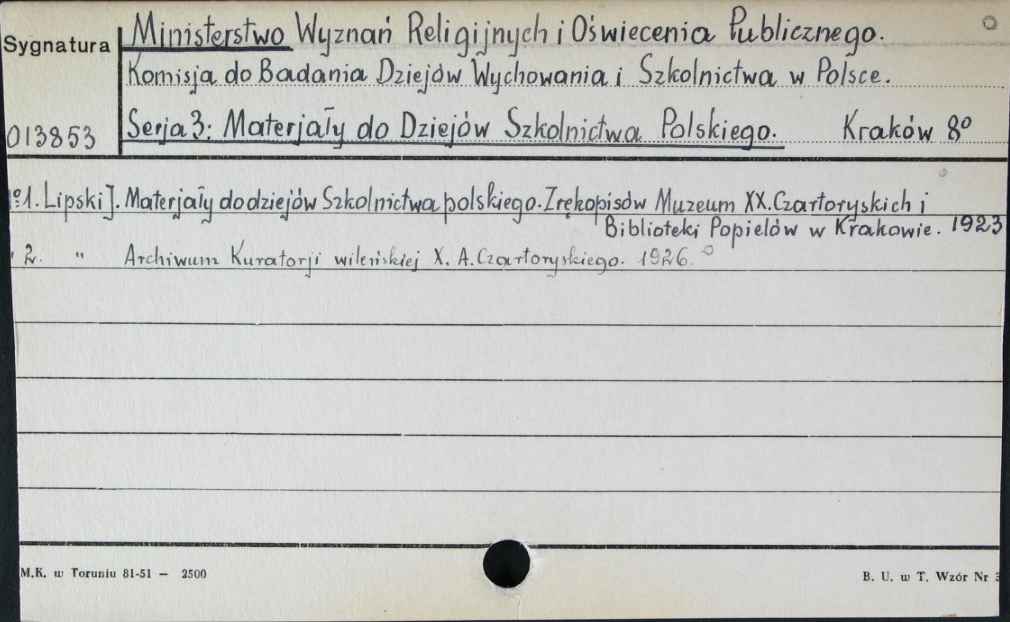 Sygnatura
013853
Ministerstwo Wyznań Religijnych i Oświecenia Publicznego.
Komisja do Badania Dziejów Wychowania i Szkolnictwa w Polsce.
Serja 3: Materjały do Dziejów Szkolnictwa Polskiego. Kraków 8°
1. Lipski J. Materjały do dziejów Szkolnictwa polskiego. Z rękopisów Muzeum XX. Czartoryskich i
Biblioteki Popielów w Krakowie. 1923
2. " Archiwum Kuratorji wileńskiej X. A. Czartoryskiego. 1926.
M.K. w Toruniu 81-51 — 2500
B. U. w T. Wzór Nr 3